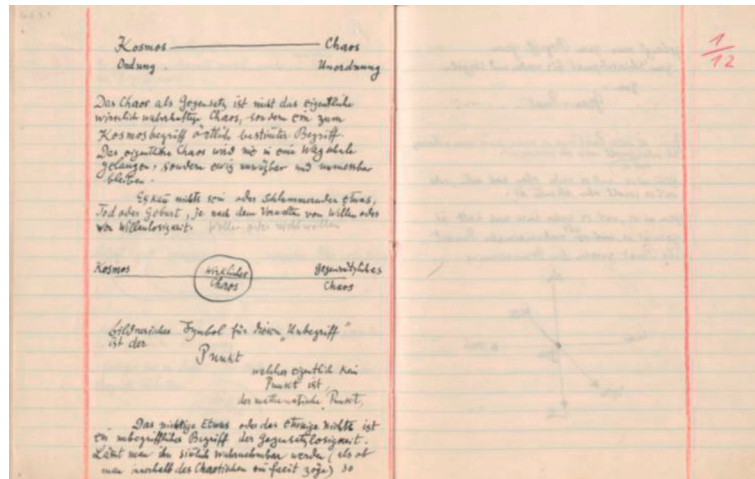 Kosmos Chaos
Ordnung. Unordnung
Das Chaos als Gegensatz ist nicht das eigentliche
wirklich wahrhaftige Chaos, sondern ein zum
Kosmosbegriff örtlich bestimter Begriff.
Das eigentliche Chaos wird nie in eine Wagschale
gelangen, sondern ewig unwägbar und unmessbar
bleiben.
Es kañ nichts sein oder schlummerndes Etwas,
Tod oder Geburt, je nach dem Vorwalten von Willen oder
von Willenlosigkeit. Wollen oder nichtwollen
Kosmos wirkliches Chaos gegensätzliches Chaos
bildnerisches Symbol für diesen „Unbegriff"
ist der
Punkt
welcher eigentlich kein
Punkt ist,
der mathematische Punkt.
Das nichtige Etwas oder das etwaige Nichts ist
ein unbegrifflicher Begriff der Gegensatzlosigkeit.
Lässt man ihn sinlich wahrnehmbar werden (als ob
man innerhalb des Chaotischen ein facit zöge) so
1/12